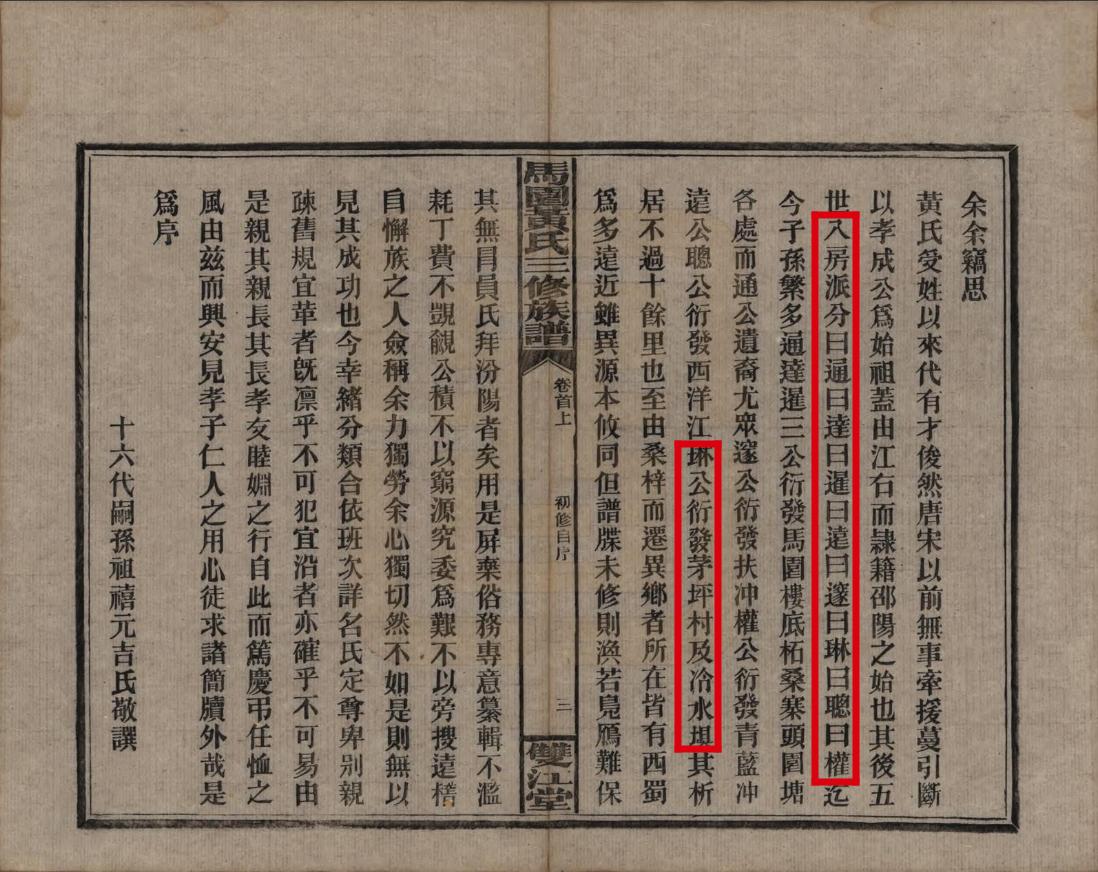 余余籍思
黃氏受姓以來代有才俊然唐宋以前無事牽援蔓引斷
以孝成公爲始祖蓋由江右而隷籍邵陽之始也其後五
世八房派分曰通曰達曰暹曰遠曰邃曰琳曰聰曰權迄
今子孫繁多通達暹三公衍發馬園樓底柘桑寨頭園塘
各處而通公遺裔尤眾邃公衍發扶冲權公衍發青藍冲
遠公聰公衍發西洋江琳公衍發茅坪村及冷水垻其析
居不過十餘里也至由桑梓而遷異鄉者所在皆有西蜀
爲多遠近雖異源本攸同但譜牒未修則渙若鳧鴈難保
馬園黃氏三修族譜
卷首上
初修自序
三
雙江堂
其無冐員氏拜汾陽者矣用是屏棄俗務專意纂輯不濫
耗丁費不覬覦公積不以窮源究委爲艱不以旁搜遠
自懈族之人僉稱余力獨勞余心獨切然不如是則無以
見其成功也今幸緒分類合依班次詳名氏定尊卑别親
疎舊規宜革者旣凛乎不可犯宜沿者亦確乎不可易由
是親其親長其長孝友睦婣之行自此而篤慶弔任恤之
風由兹而興安見孝子仁人之用心徒求諸簡牘外哉是
爲序
十六代嗣孫祖禧元吉氏敬譔